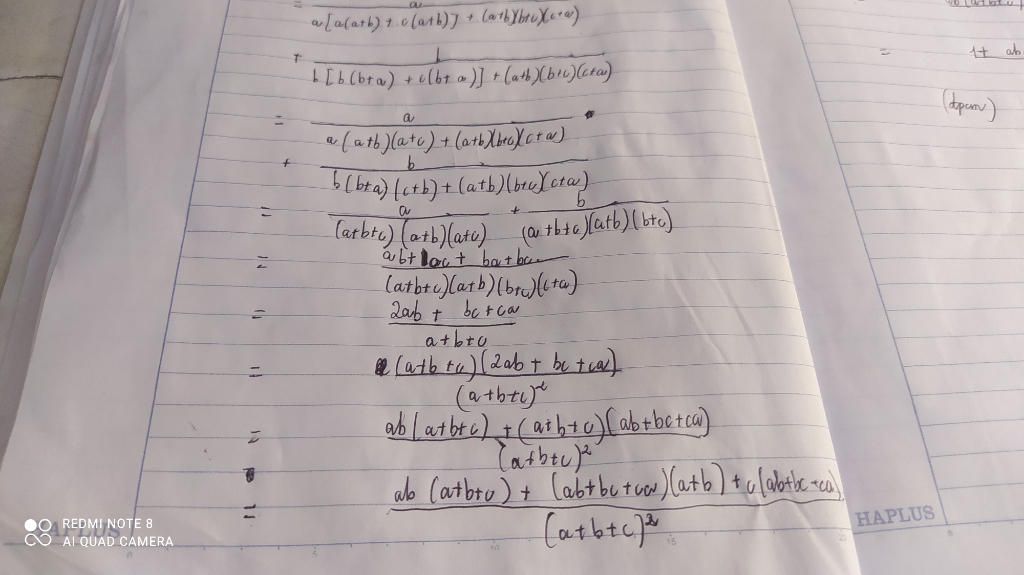 = a / a[a(a+b) + c(a+b)] + (a+b)(b+c)(c+a)
+ b / b[b(b+a) + c(b+a)] + (a+b)(b+c)(c+a)
= a / a(a+b)(a+c) + (a+b)(b+c)(c+a)
+ b / b(b+a)(c+b) + (a+b)(b+c)(c+a)
= a / (a+b+c)(a+b)(a+c) + b / (a+b+c)(a+b)(b+c)
= ab + ac + ba + bc / (a+b+c)(a+b)(b+c)(c+a)
= 2ab + bc + ca / a+b+c
= (a+b+c)(2ab + bc + ca) / (a+b+c)²
= ab(a+b+c) + (a+b+c)(ab+bc+ca) / (a+b+c)²
= ab(a+b+c) + (ab+bc+ca)(a+b) + c(ab+bc+ca) / (a+b+c)²
= 1+ ab
(dpcm)
HAPLUS
REDMI NOTE 8
AI QUAD CAMERA